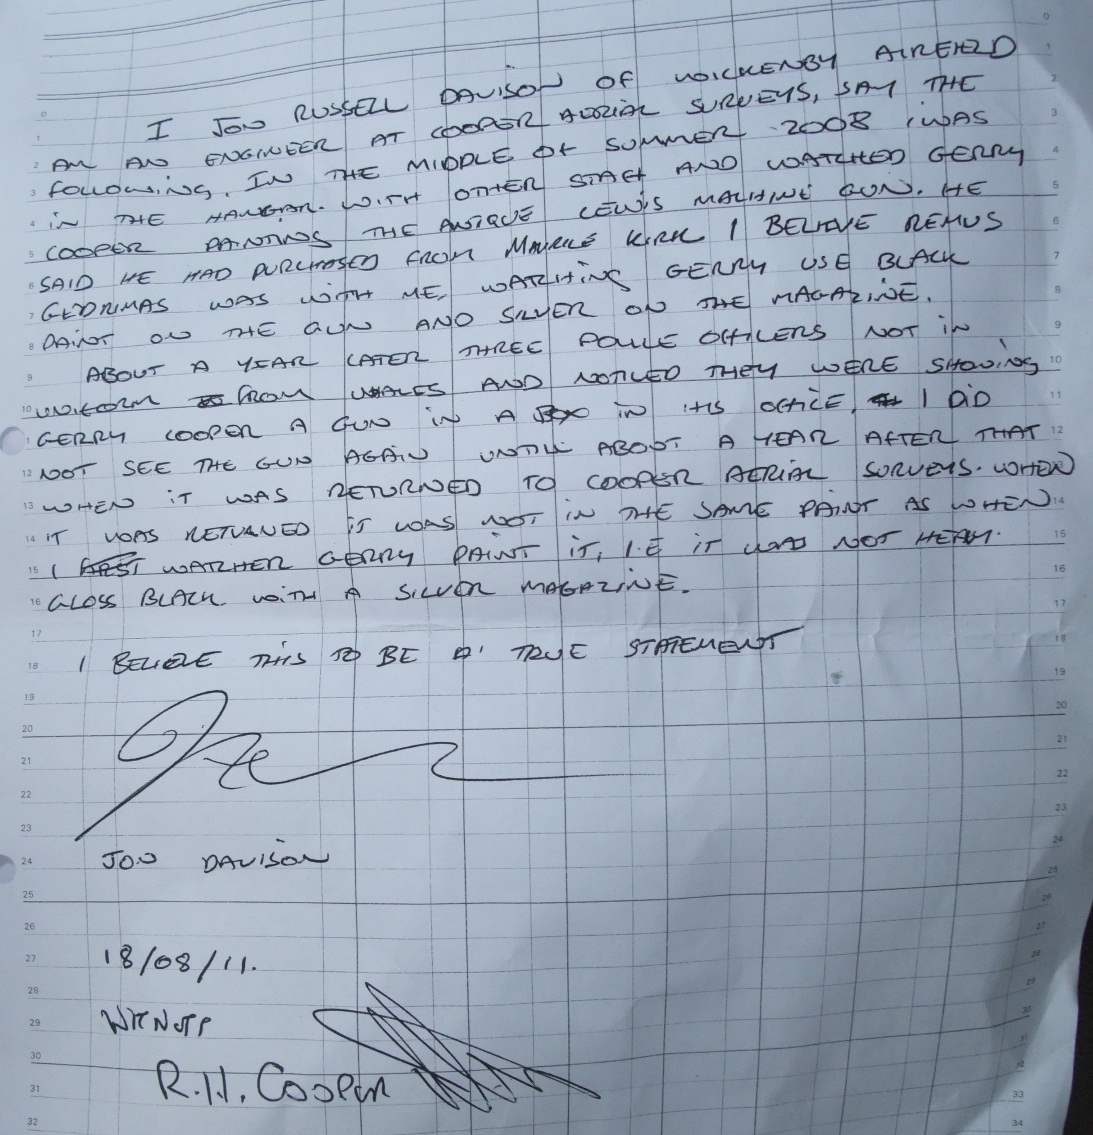 I JON RUSSELL DAVISON OF WICKENBY AIRFIELD
AM AN ENGINEER AT COOPER AERIAL SURVEYS, SAY THE
FOLLOWING. IN THE MIDDLE OF SUMMER 2008 I WAS
IN THE HANGAR. WITH OTHER STAFF AND WATCHED GERRY
COOPER PAINTING THE ANTIQUE LEWIS MACHINE GUN. HE
SAID HE HAD PURCHASED FROM KIRK I BELIEVE REMUS
WAS WITH ME, WATCHING GERRY USE BLACK
PAINT ON THE GUN AND SILVER ON THE MAGAZINE.
ABOUT A YEAR LATER THREE POLICE OFFICERS NOT IN
UNIFORM FROM WALES AND NOTICED THEY WERE SHOWING
GERRY COOPER A GUN IN A BOX IN HIS OFFICE, I DID
NOT SEE THE GUN AGAIN UNTIL ABOUT A YEAR AFTER THAT
WHEN IT WAS RETURNED TO COOPER AERIAL SURVEYS. WHEN
IT WAS RETURNED IT WAS NOT IN THE SAME PAINT AS WHEN
I FIRST WATCHED GERRY PAINT IT, I.E IT WAS NOT HEAVY.
GLOSS BLACK. WITH A SILVER MAGAZINE.
I BELIEVE THIS TO BE A TRUE STATEMENT
JON DAVISON
18/08/11.
R.H. Cooper
0
1
2
3
4
5
6
7
8
9
10
11
12
13
14
15
16
17
18
19
20
21
22
23
24
25
26
27
28
29
30
31
32
33
34